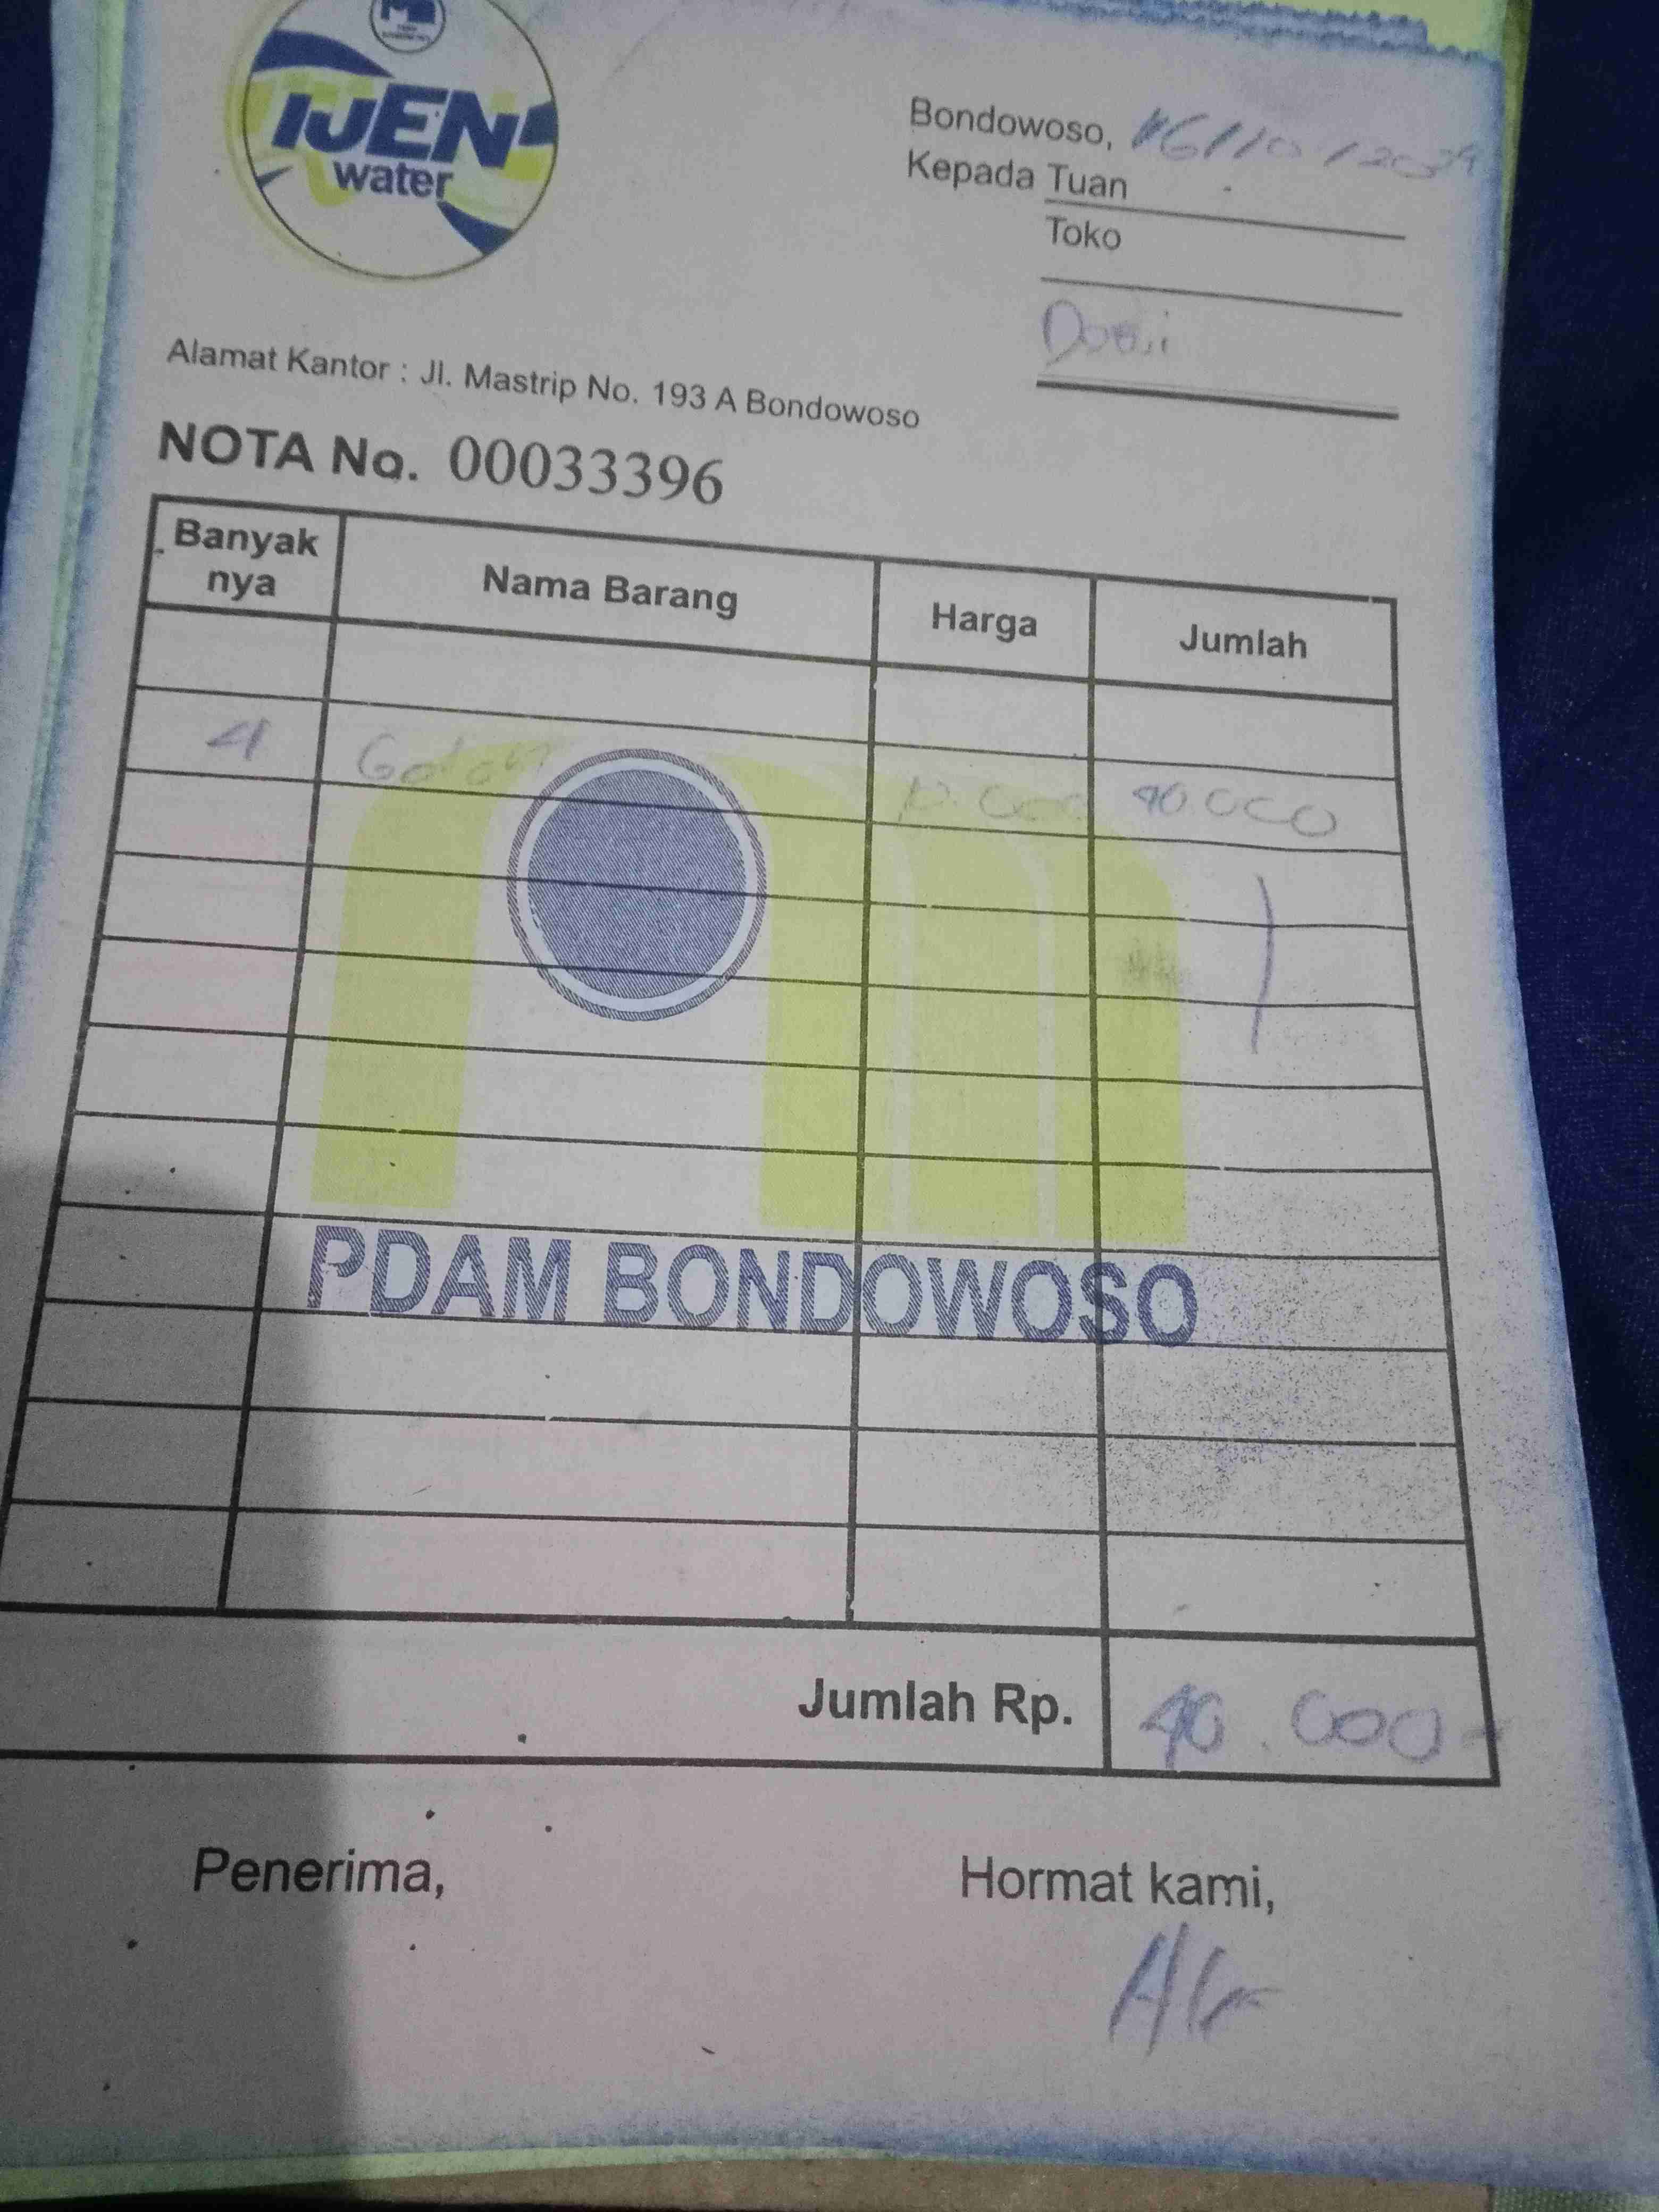 IJEN
water
Bondowoso, 16/10/2024
Kepada Tuan
Toko
Alamat Kantor : Jl. Mastrip No. 193 A Bondowoso
NOTA No. 00033396
Banyak nya Nama Barang Harga Jumlah
4 10.000 40.000
PDAM BONDOWOSO
Jumlah Rp. 40.000-
Penerima, Hormat kami,